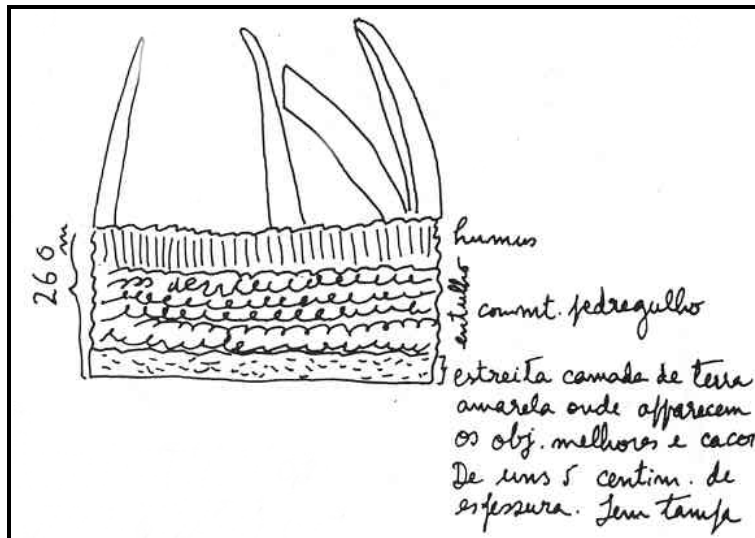 260 m
humus
entulho
com mt. pedregulho
estreita camada de terra
amarela onde apparecem
os obj. melhores e cacos
De uns 5 centim. de
espessura. Sem tampa